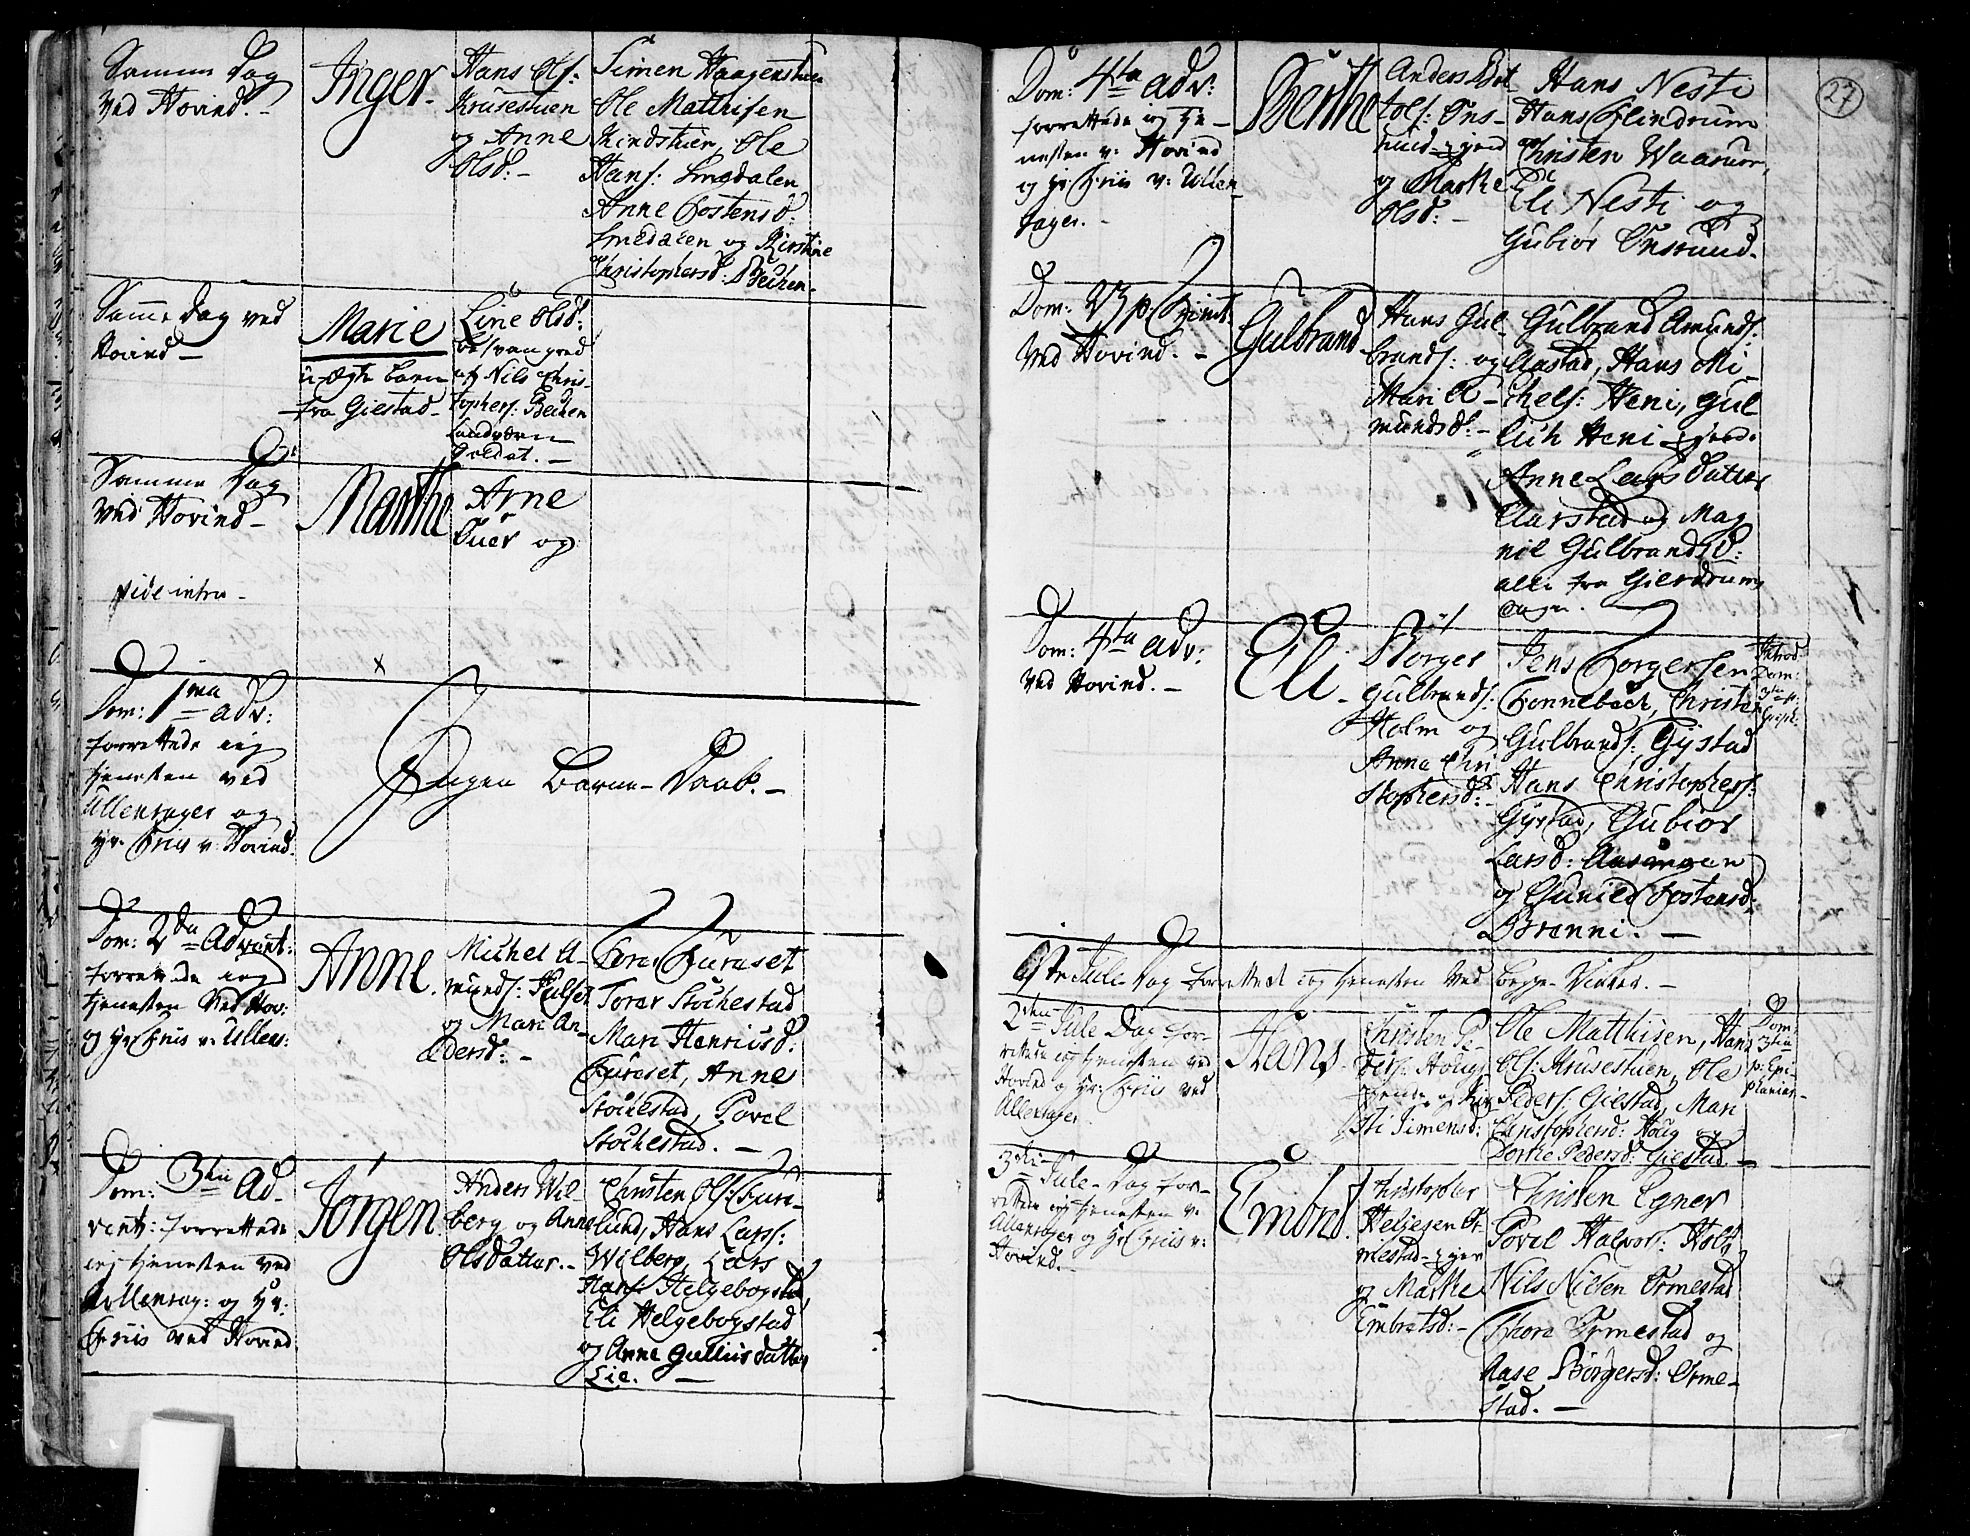 Samme Dag
ved Hovind. -
Inger.
Hans Ols:
Krusestuen
og Anne
Olsd: -
Simen Haagenstuen
Ole Matthisen
Kindstuen, Ole
Hans: Smedalen
Anne Tostensd:
Smedalen og Kirstine
Christophersd: Bechen.
Samme Dag ved
Hovind -
Marie
u-ægte barn
fra Giestad -
Line Olsd:
besvangred
af Nils Chris-
tophers: Bechen
Landværn
Soldat. -
Samme Dag
ved Hovind -
vide infra -
Marthe
Arne
Tuer og
Dom: 1ma adv:
forrettede ieg
tienesten ved
Ullensager og
Hr. Friis v: Hovind.
Ingen Barne-Daab. -
Dom: 2da Advent:
forrettede ieg
tienesten ved Hov:
og Hr Friis v: Ullens:
Anne.
Michel A-
munds:
og Mari An-
dersd: -
Furuset
Torer Stochestad
Mari Henricsd:
Furuset, Anne
Stochestad, Povel
Stochestad. -
Dom: 3tia Ad-
vent: forrettede
ieg tienesten ved
Ullensag: og Hr:
Friis ved Hovind
Jørgen.
Anders Wil
berg og Anne
Olsdatter. -
Christen Ols: Furu-
lund, Hans Larss:
Wilberg, Lars
Hans: Helgebogstad,
Eli Helgebogstad
og Anne Gulliisdatter
Lie. -
27
Dom: 4ta adv:
forrettede ieg tie-
nesten v: Hovind
og Hr: Friis v: Ullen-
sager. -
Berthe
Anders Bot
tols: Ons-
rund-eyed
og Marthe
Olsd: -
Hans Nesti
Hans Flindrum
Christen Waarum,
Eli Nesti og
Gubiør Onsrund.
Dom: 23 p: Trinit:
ved Hovind. -
Gulbrand
Hans Gul-
brands: og
Mari A-
mundsd: -
Gulbrand Amunds:
Aastad, Hans Mi-
chels: Heni, Gul
lich Heni
Anne Larsdatter
Aarstad og Mag
nil Gulbrandsd:
alle fra Gierdrum
Sogn.
Dom: 4ta adv:
ved Hovind. -
Eli -
Børger
Gulbrands:
Holm og
Anna Chri
stophersd: -
Jens Torgersen
Tonnebøch, Christen
Gulbrands: Gystad
Hans Christophers:
Gystad, Gubiør
Larsd: Aasengen
og Gunild Tostensd
Brenni. -
Introd
Dom:
3tia p:
Epiph:
1ste Jule-Dag forrettede ieg tienesten ved begge Kirker. -
2den Jule Dag for-
rettede ieg tienesten ved
Hovind og Hr: Friis ved
Ullensager
Hans.
Christen Pe-
ders: Houg
og Kir
sti Simensd:
Ole Matthisen, Hans
Ols: Krusestuen, Ole
Peders: Giestad, Mari
Christophersd: Houg og
Dorthe Pedersd: Giestad. -
Dom:
3tia
p: Epi-
phanias -
3die Jule-Dag for-
rettede ieg tienesten v:
Ullensager og Hr Friis v:
Hovind. -
Embret.
Christopher
Heljesen Or
mestad-
og Marthe
Embretsd: -
Christen Egner
Povel Halvors: Holt
Nils Nilsen Ormestad
Thore Ormestad og
Aase Børgersd: Orme-
stad. -